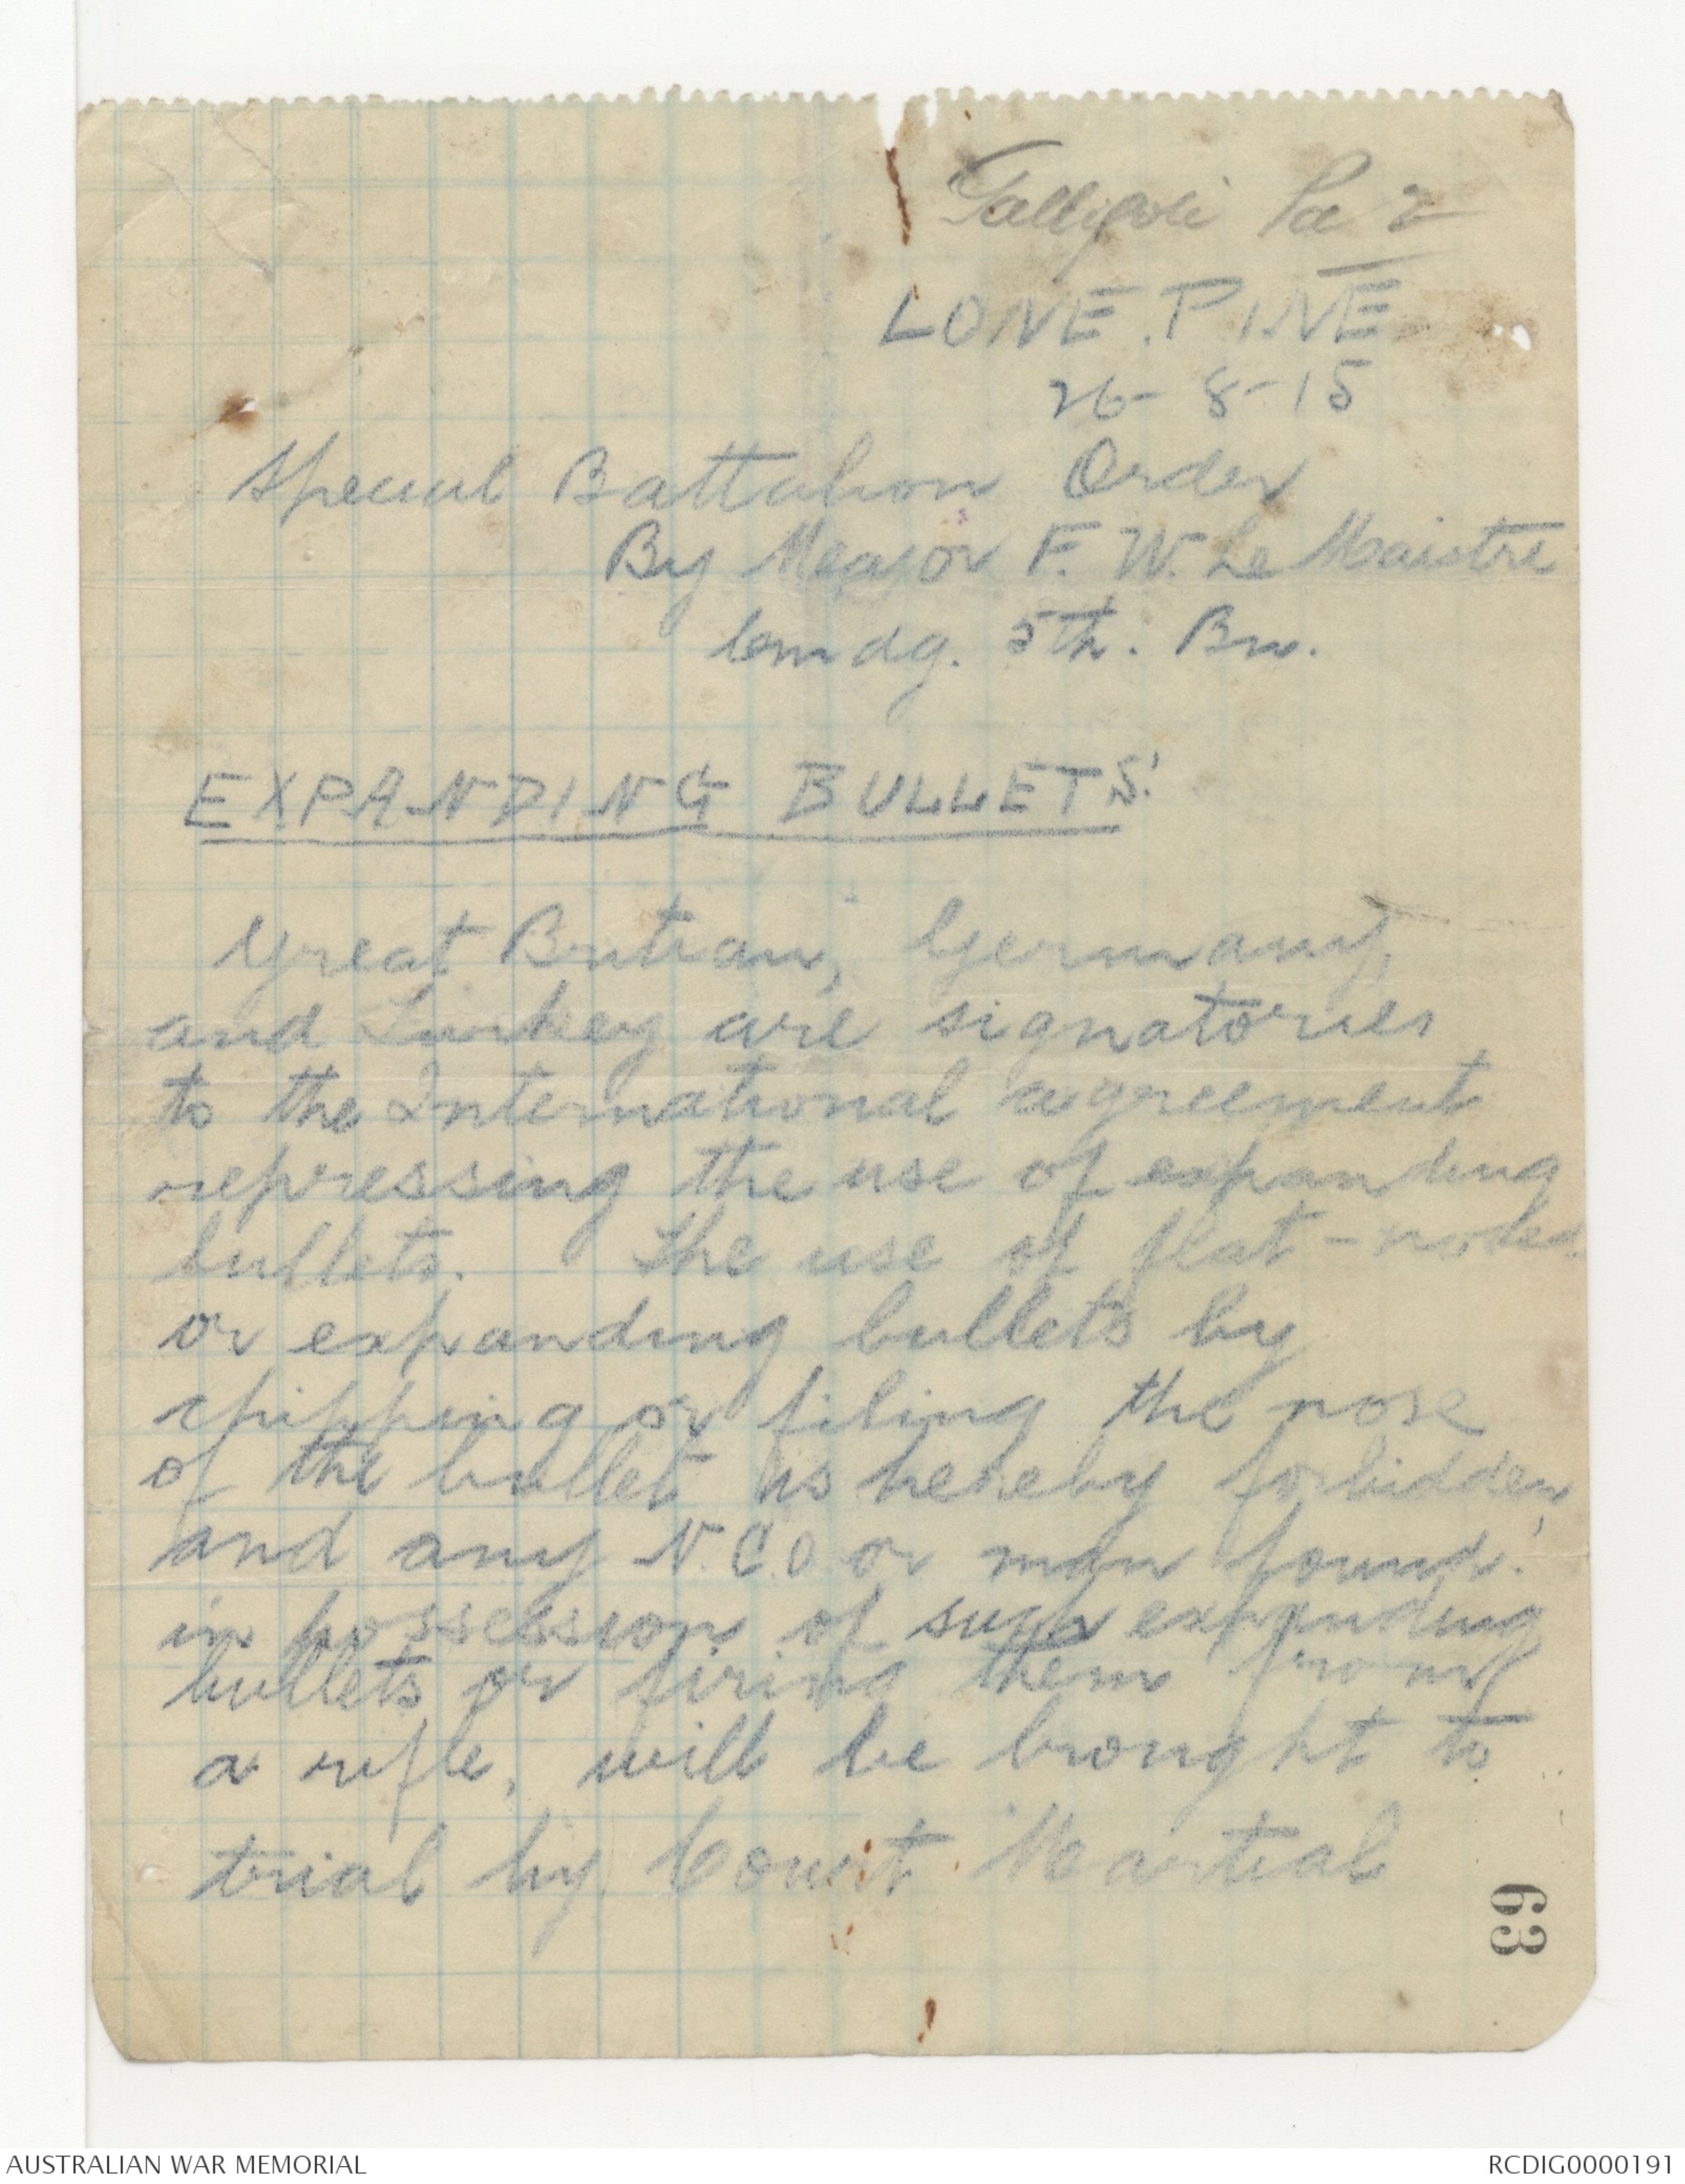 Gallipoli Pa 2
LONE PINE
26-8-15
Special Battalion Order
By Major F. W. Le Maistre
Comdg. 5th. Bn.
EXPANDING BULLETS:
Great Britain, Germany,
and Turkey are signatories
to the International agreement
repressing the use of expanding
bullets. The use of flat-nosed
or expanding bullets by
chipping or filing the nose
of the bullet is hereby forbidden,
and any N.C.O. or man found
in possession of such expanding
bullets or firing them from
a rifle, will be brought to
trial by Court Martial
63
AUSTRALIAN WAR MEMORIAL
RCDIG0000191